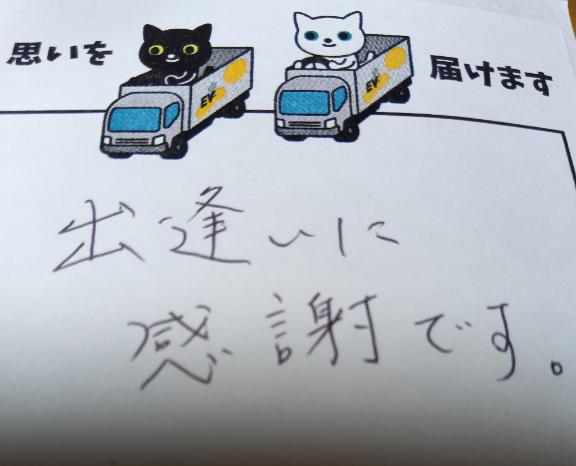 思いを 届けます
EV EV
出逢いに
感謝です。